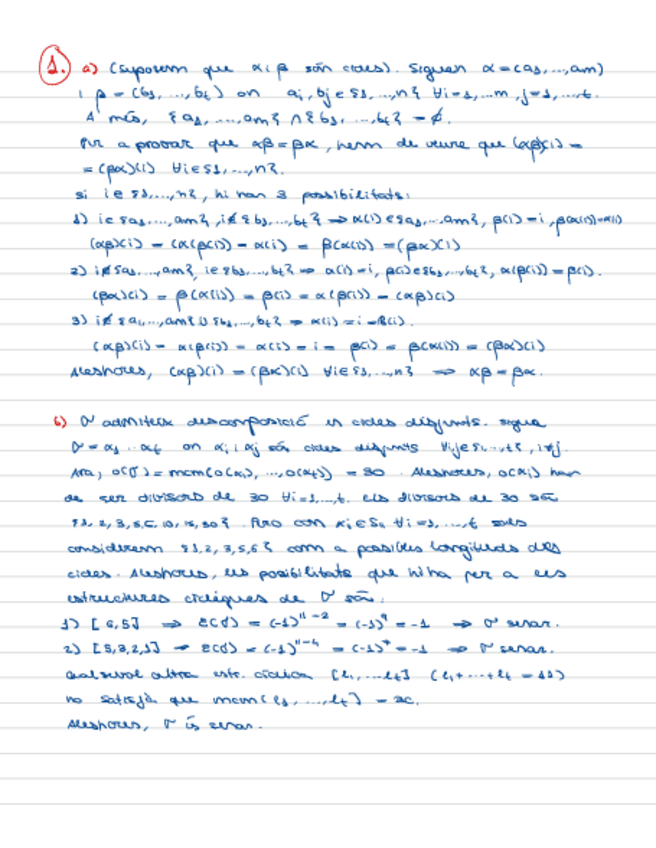 1. a) (suposem que α i β són cicles). Siguen α = (a1, ..., am)
i β = (b1, ..., bt) on ai, bj ∈ {1, ..., n} ∀i=1, ...m, j=1, ..., t.
A més, {a1, ..., am} ∩ {b1, ..., bt} = ∅.
Per a provar que αβ = βα, hem de veure que (αβ)(i) =
= (βα)(i) ∀i∈{1, ..., n}.
Si i∈{1, ..., n}, hi han 3 possibilitats:
1) i∈{a1, ..., am}, i∉{b1, ..., bt} ⇒ α(i)∈{a1, ..., am}, β(i)=i, β(α(i))=α(i)
(αβ)(i) = (α(β(i)) = α(i) = β(α(i)) = (βα)(i)
2) i∉{a1, ..., am}, i∈{b1, ..., bt} ⇒ α(i)=i, β(i)∈{b1, ..., bt}, α(β(i)) = β(i).
(βα)(i) = β(α(i)) = β(i) = α(β(i)) = (αβ)(i)
3) i∉{a1, ..., am} ∪ {b1, ..., bt} ⇒ α(i) = i = β(i).
(αβ)(i) = α(β(i)) = α(i) = i = β(i) = β(α(i)) = (βα)(i)
Aleshores, (αβ)(i) = (βα)(i) ∀i∈{1, ..., n} ⇒ αβ = βα.
b) σ admiteix descomposició en cicles disjunts. Sigua
σ = α1 ... αt on αi i αj són cicles disjunts ∀i,j∈{1, ..., t}, i≠j.
Ara, o(σ) = mcm(o(α1), ..., o(αt)) = 30. Aleshores, o(αi) han
de ser divisors de 30 ∀i=1, ..., t. Els divisors de 30 són
{1, 2, 3, 5, 6, 10, 15, 30}. Pero com αi∈S11 ∀i=1, ..., t sols
considerem {1, 2, 3, 5, 6} com a possibles longituds dels
cicles. Aleshores, les posibilitats que hi ha per a les
estructures cícliques de σ són:
1) [6,5] ⇒ ε(σ) = (-1)^11-2 = (-1)^9 = -1 ⇒ σ senar.
2) [5,3,2,1] ⇒ ε(σ) = (-1)^11-4 = (-1)^7 = -1 ⇒ σ senar.
Qualsevol altra estr. cíclica [l1, ... lt] (l1+...+lt = 11)
no satisfà que mcm(l1, ..., lt) = 30.
Aleshores, σ és senar.